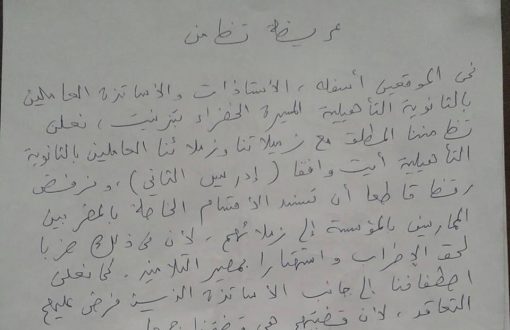 عريضة تضامن
نحن الموقعين أسفله، الأستاذات والأساتذة العاملين
بالثانوية التأهيلية المسيرة الخضراء بتيزنيت، نعلن
تضامننا المطلق مع زميلاتنا وزملائنا العاملين بالثانوية
التأهيلية أيت وافقا (إدريس الثاني)، ونرفض
رفضا قاطعا أن تسند الأقسام الخاصة بالمضربين
الممارسين بالمؤسسة إلى زملائهم، لأن في ذلك ضربا
لحق الإضراب واستهتارا بمصير التلاميذ. كما نعلن
اصطفافنا إلى جانب الأساتذة الذين فرض عليهم
التعاقد، لأن قضيتهم هي قضيتنا جميعا